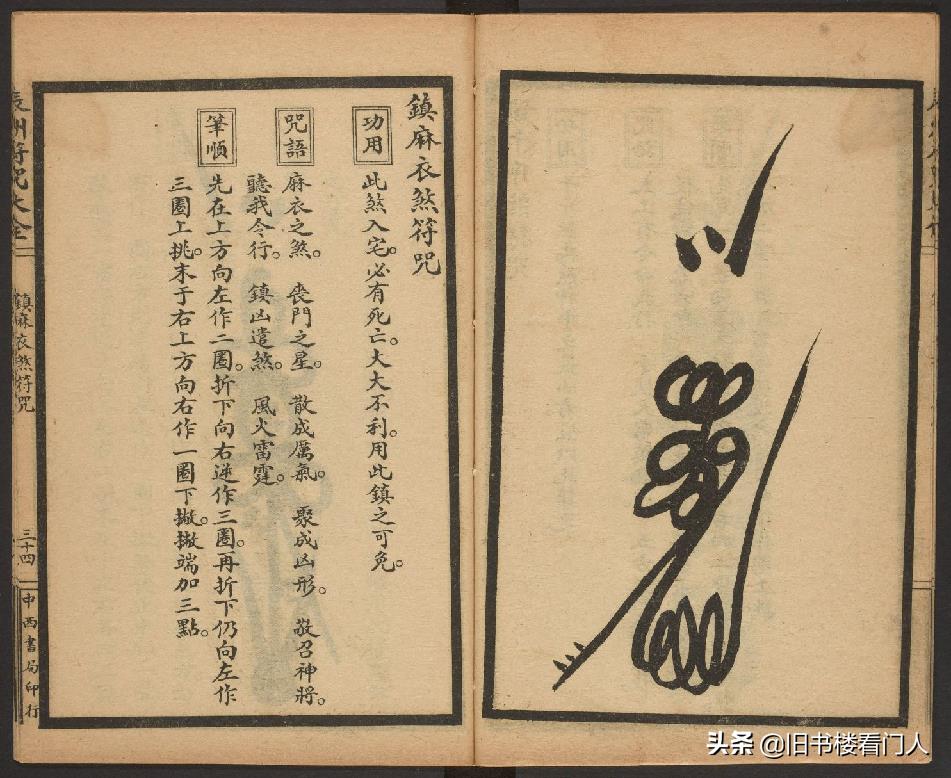 鎮麻衣煞符咒
功用
此煞入宅。必有死亡。大大不利。用此鎮之可免。
咒語
麻衣之煞。　喪門之星。　散成厲氣。　聚成凶形。　敬召神將。
聽我令行。　鎮凶遣煞。　風火雷霆。
筆順
先在上方向左作二圈。折下向右逆作三圈。再折下仍向左作
三圈上挑。末于右上方向右作一圈下撇。撇端加三點。
符咒大全
鎮麻衣煞符咒
三十四
中西書局印行
头条 @旧书楼看门人